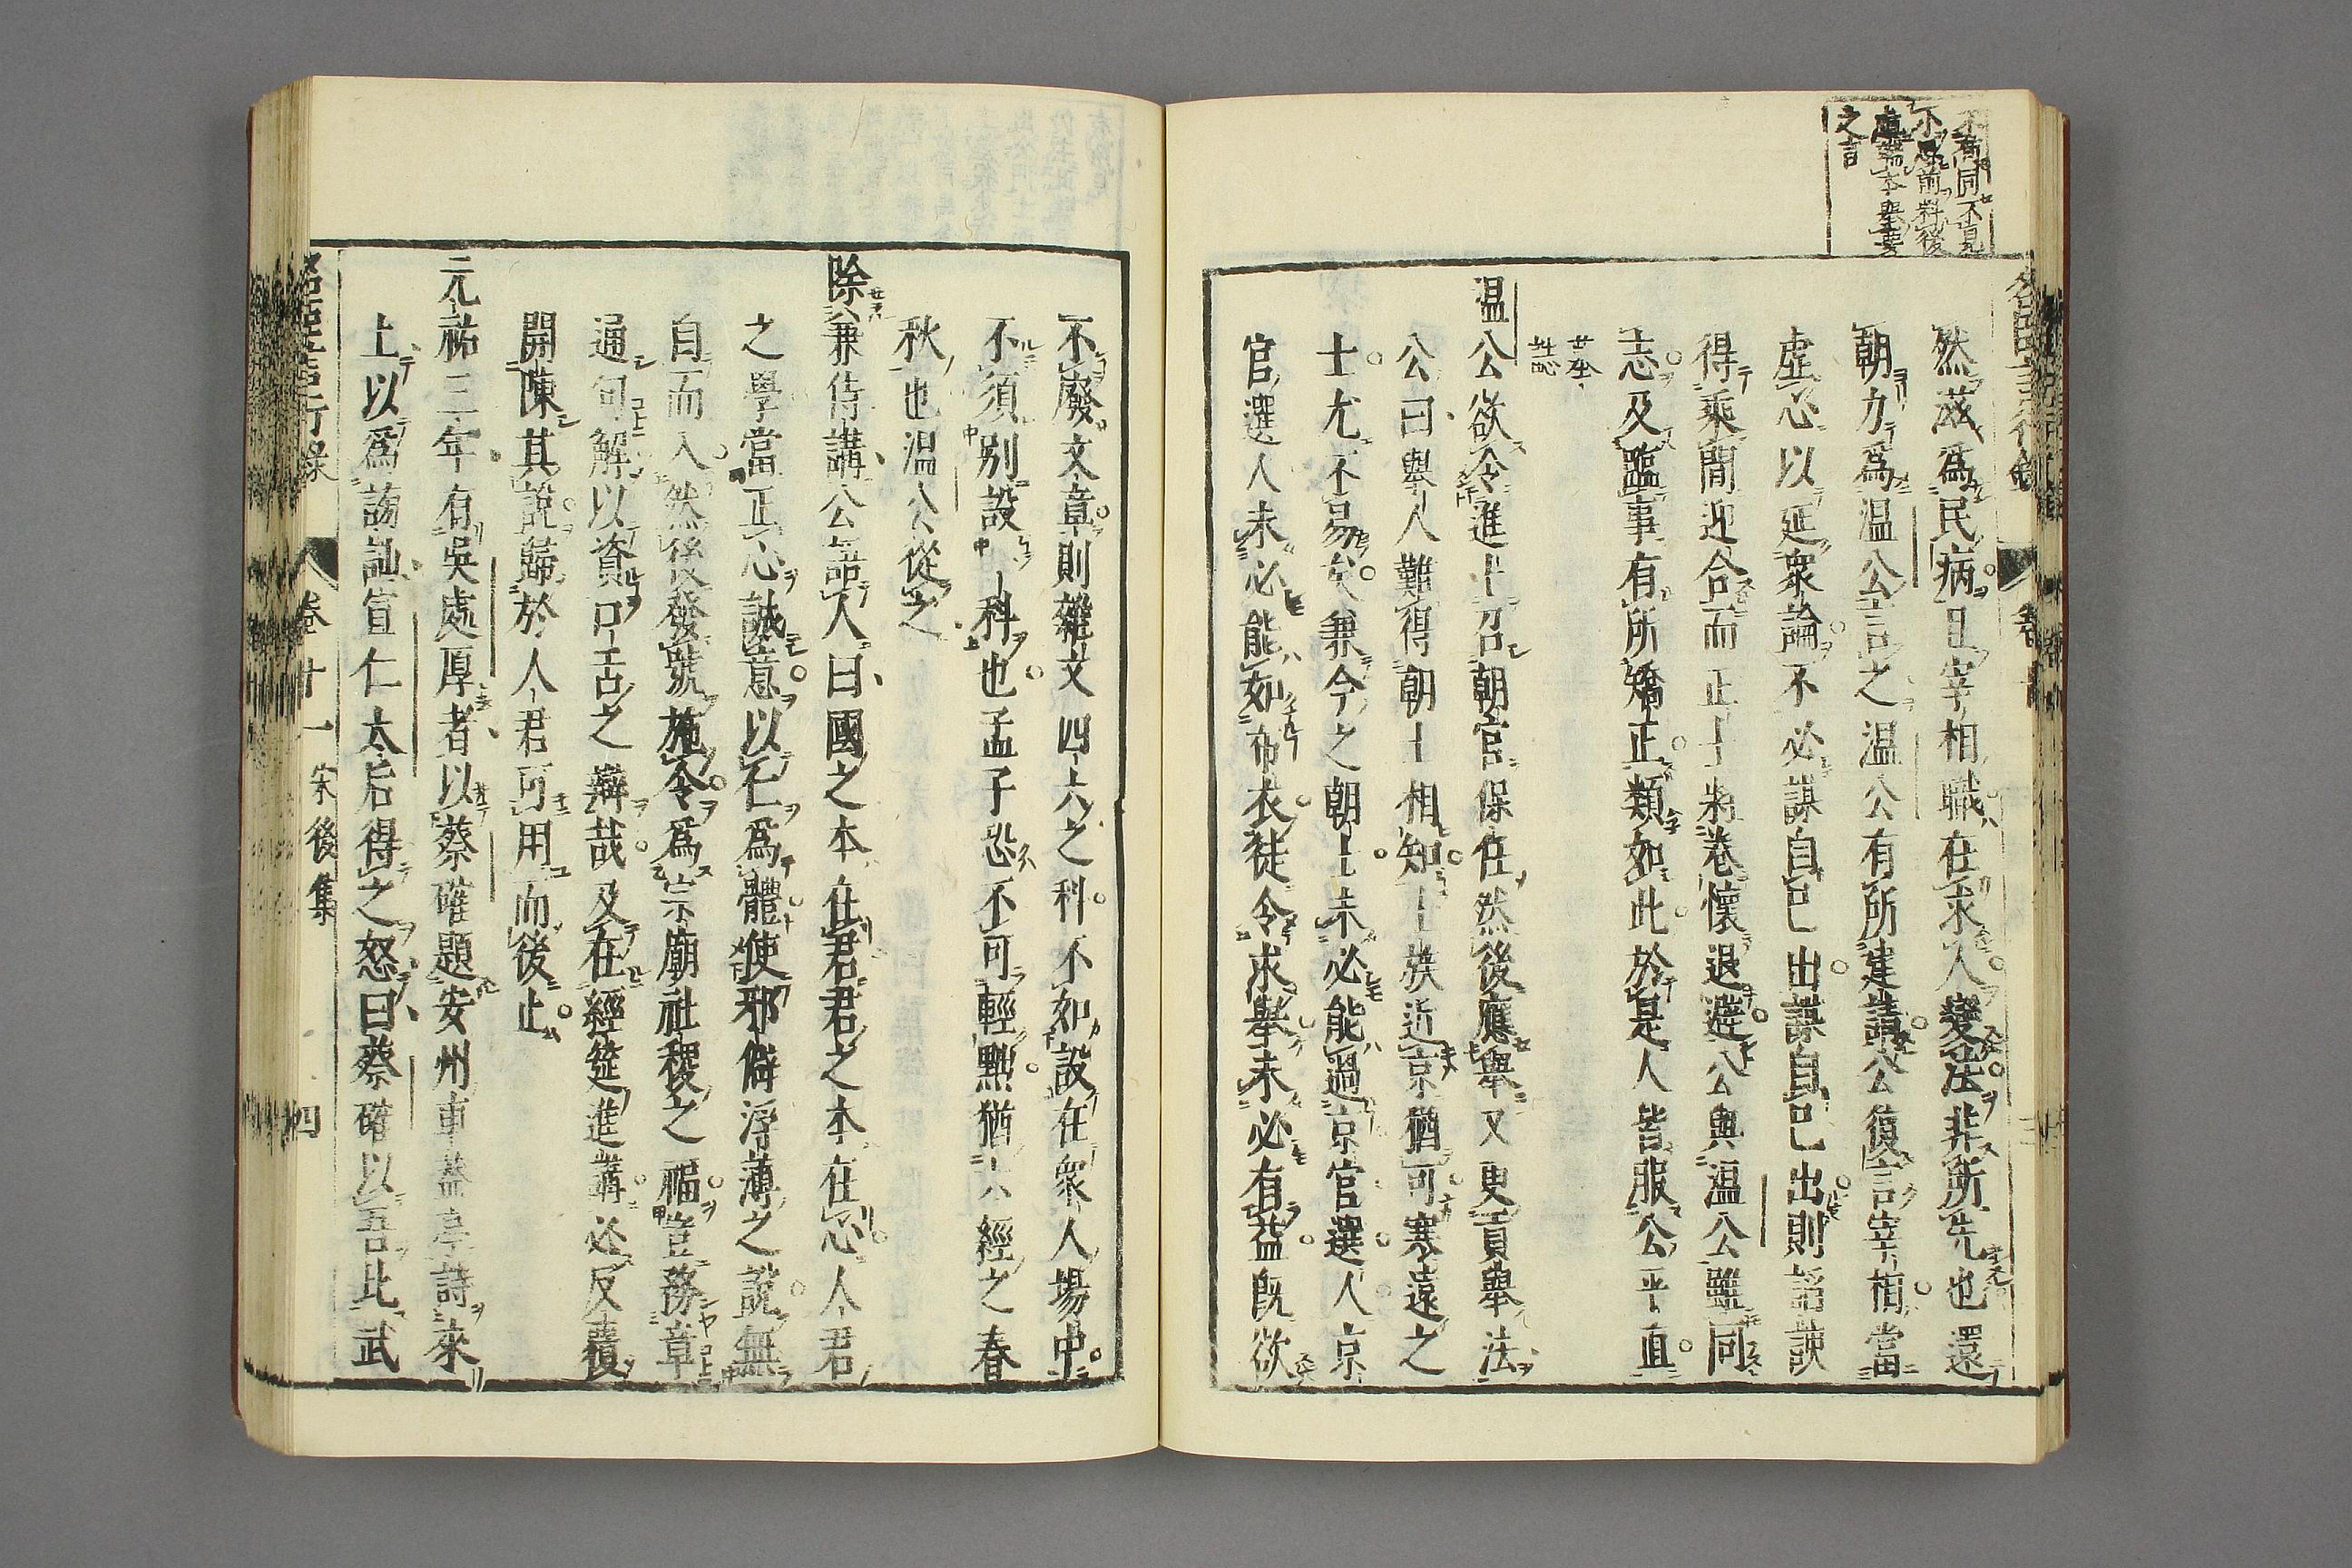 不苟同不見
不思前料後
真端本舉要
之言
然滋爲民病且宰相職在求人變法非所先也還
朝力爲温公言之温公有所建請公復言宰相當
虚心以延衆論不必謀自已出謀自已出則謟諛
得乘間迎合而正士將卷懷退避公與温公雖同
志及臨事有所矯正類如此於是人皆服公平直
温公欲令進士召朝官保任然後應舉又更貢舉法
公曰舉人難得朝士相知士族近京猶可寒遠之
士尤不易矣兼今之朝士未必能過京官選人京
官選人未必能如布衣徒令求舉未必有益既欲
不廢文章則雜文四六之科不如設在衆人場中
不須別設一科也孟子恐不可輕黜猶六經之春
秋也温公從之
除兼侍講公語人曰國之本在君君之本在心人君
之學當正心誠意以仁爲體使邪僻浮薄之說無
自而入然後發號施令爲宗廟社稷之福豈務章
通句解以資口舌之辯哉及在經筵進講必反覆
開陳其說歸於人君可用而後止
元祐三年有吳處厚者以蔡確題安州車蓋亭詩來
上以爲謗訕宣仁太后得之怒曰蔡確以吾比武
名臣言行錄 卷十一 宋後集 四